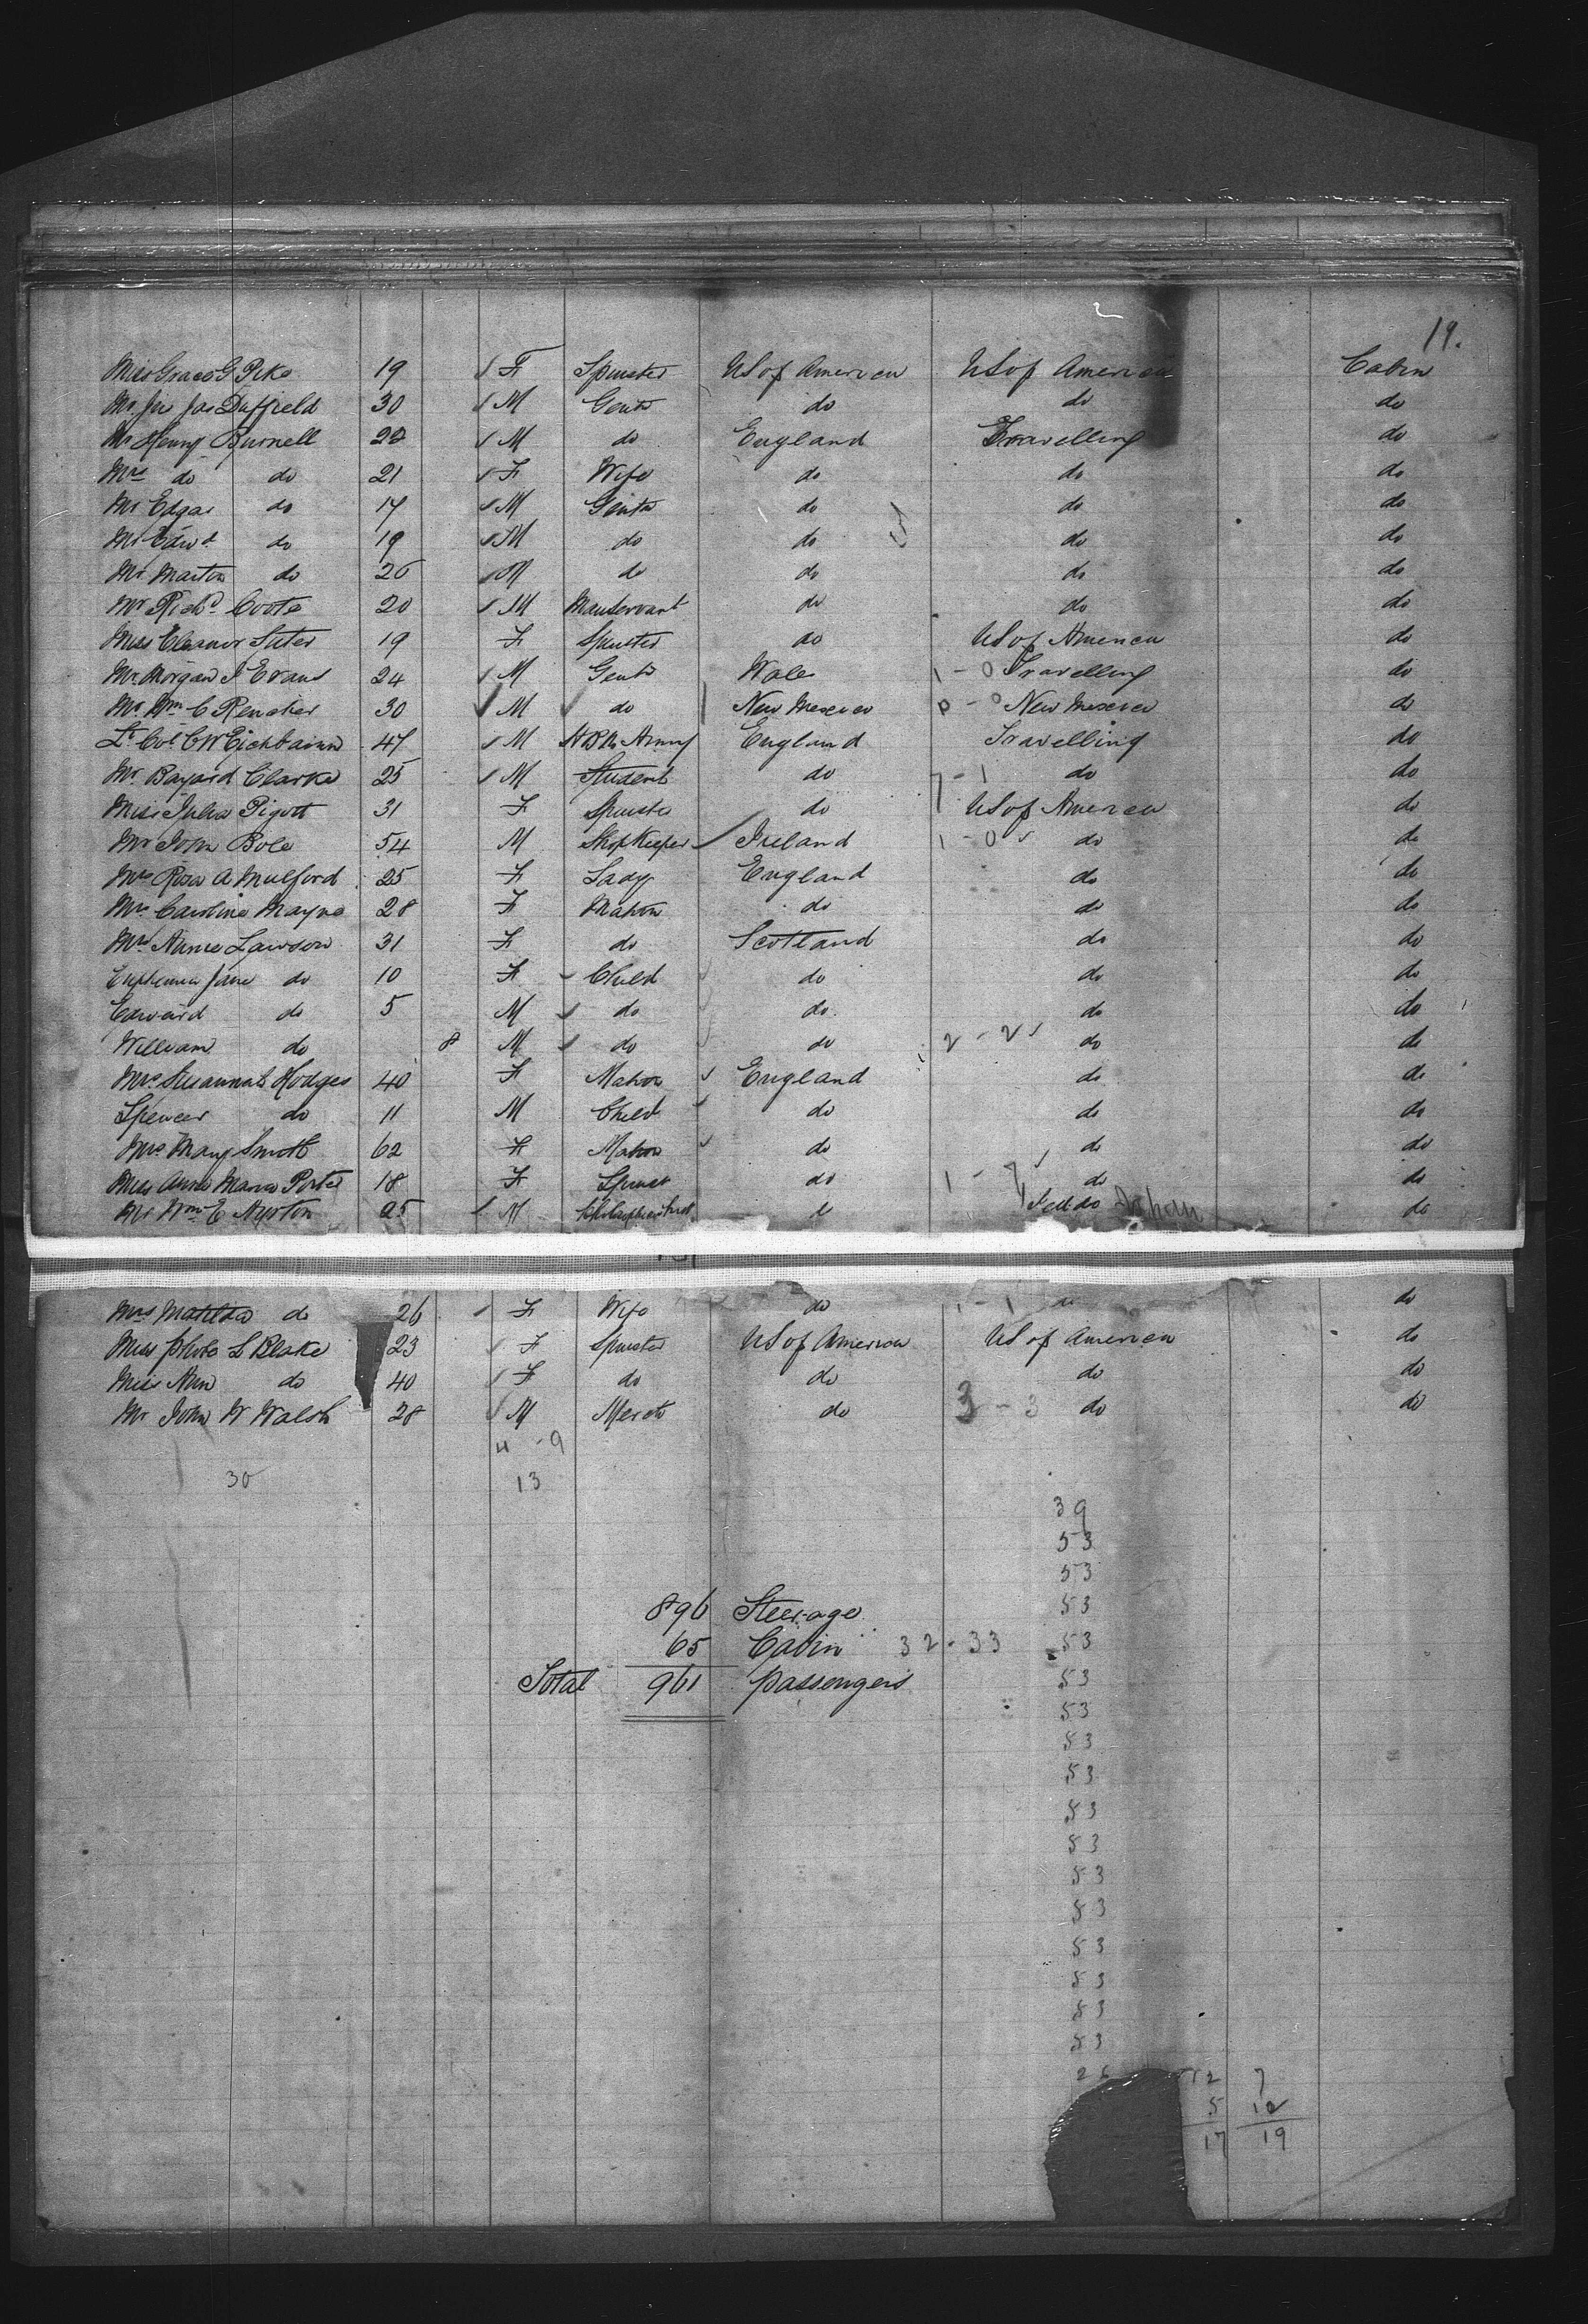 19.
Miss Grace G Pike 19 F Spinster US of America US of America Cabin
Mr Jno Jas Duffield 30 M Gentn do do do
Mr Henry Burnell 22 M do England Travelling do
Mrs do do 21 F Wife do do do
Mr Edgar do 17 M Gentn do do do
Mr Edwd do 19 M do do do do
Mr Marton do 26 M do do do do
Mr Richd Coote 20 M Manservant do do do
Miss Eleanor Suter 19 F Spinster do US of America do
Mr Morgan J Evans 24 M Gentn Wales 1 - 0 Travelling do
Mr Wm C Rencher 30 M do New Mexico 0 - 0 New Mexico do
Lt Col C W Eichbaum 47 M H B M Army England Travelling do
Mr Bayard Clarke 25 M Student do 7 - 1 do do
Miss Julia Pigott 31 F Spinster do US of America do
Mr John Bole 54 M Shopkeeper Ireland 1 - 0 do do
Mrs Rosa A Mulford 25 F Lady England do do
Mrs Caroline Mayne 28 F Matron do do do
Mrs Annie Lawson 31 F do Scotland do do
Euphemia Jane do 10 F Child do do do
Edward do 5 M do do do do
William do 8 M do do 2 - 2 do do
Mrs Susannah Hodges 40 F Matron England do do
Spencer do 11 M Child do do do
Mrs Mary Smith 62 F Matron do do do
Miss Anne Maria Porter 18 F Spinst do 1 - 7 do do
Mr Wm E Ayrton 25 M Yeddo Japan do
Mrs Matilda do 26 F Wife do 1 - 1 do do
Miss Phobe L Blake 23 F Spinster US of America US of America do
Miss Ann do 40 F do do do do
Mr John W Walsh 28 M Mercht do 3 - 3 do do
4 - 9
30 13
39
53
53
896 Steerage 53
65 Cabin 32 - 33 53
Total 961 passengers 53
53
53
53
53
53
53
53
53
53
53
53
26 12 7
5 12
17 19